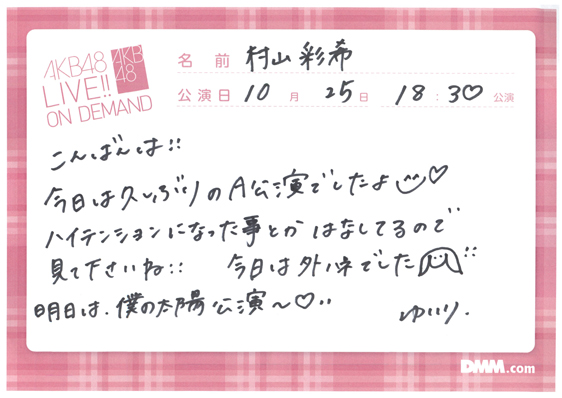 AKB48
LIVE!!
ON DEMAND
AKB
48
名前 村山彩希
公演日 10月 25日 18:30 公演
こんばんは!!
今日は久しぶりのA公演でしたよ♡
ハイテンションになった事とかはなしてるので
見て下さいね!! 今日は外ハネでした!!
明日は、僕の太陽公演〜♡!!
ゆいり.
DMM.com